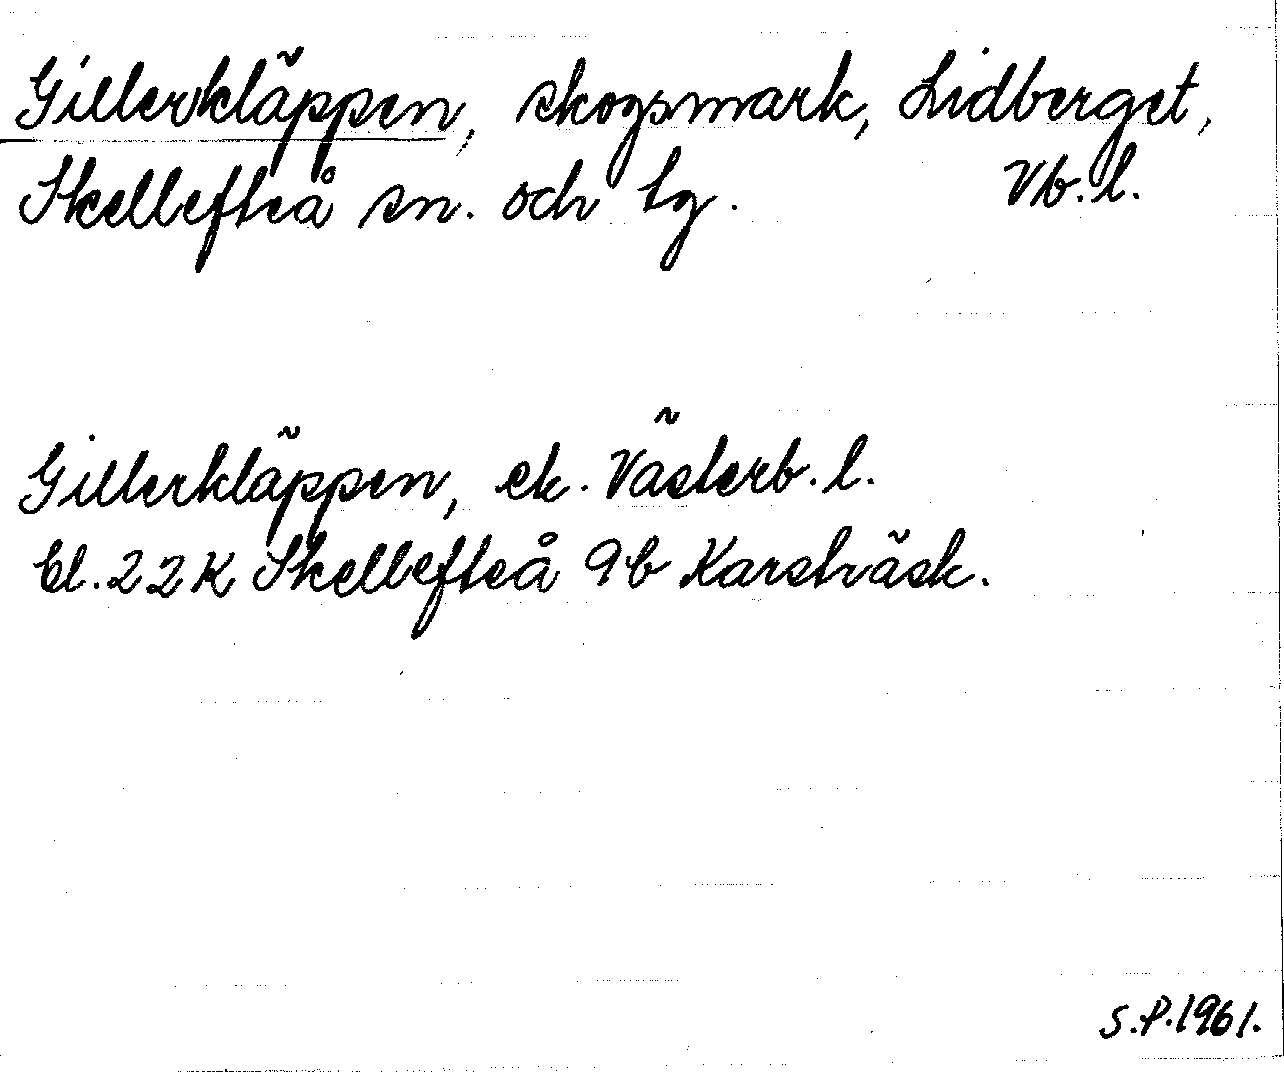 Gillerkläppen, skogsmark, Lidberget,
Skellefteå sn. och tg. Vb.l.
Gillerkläppen, ek. Västerb.l.
bl. 22K Skellefteå 9b Karsträsk.
S.P.1961.